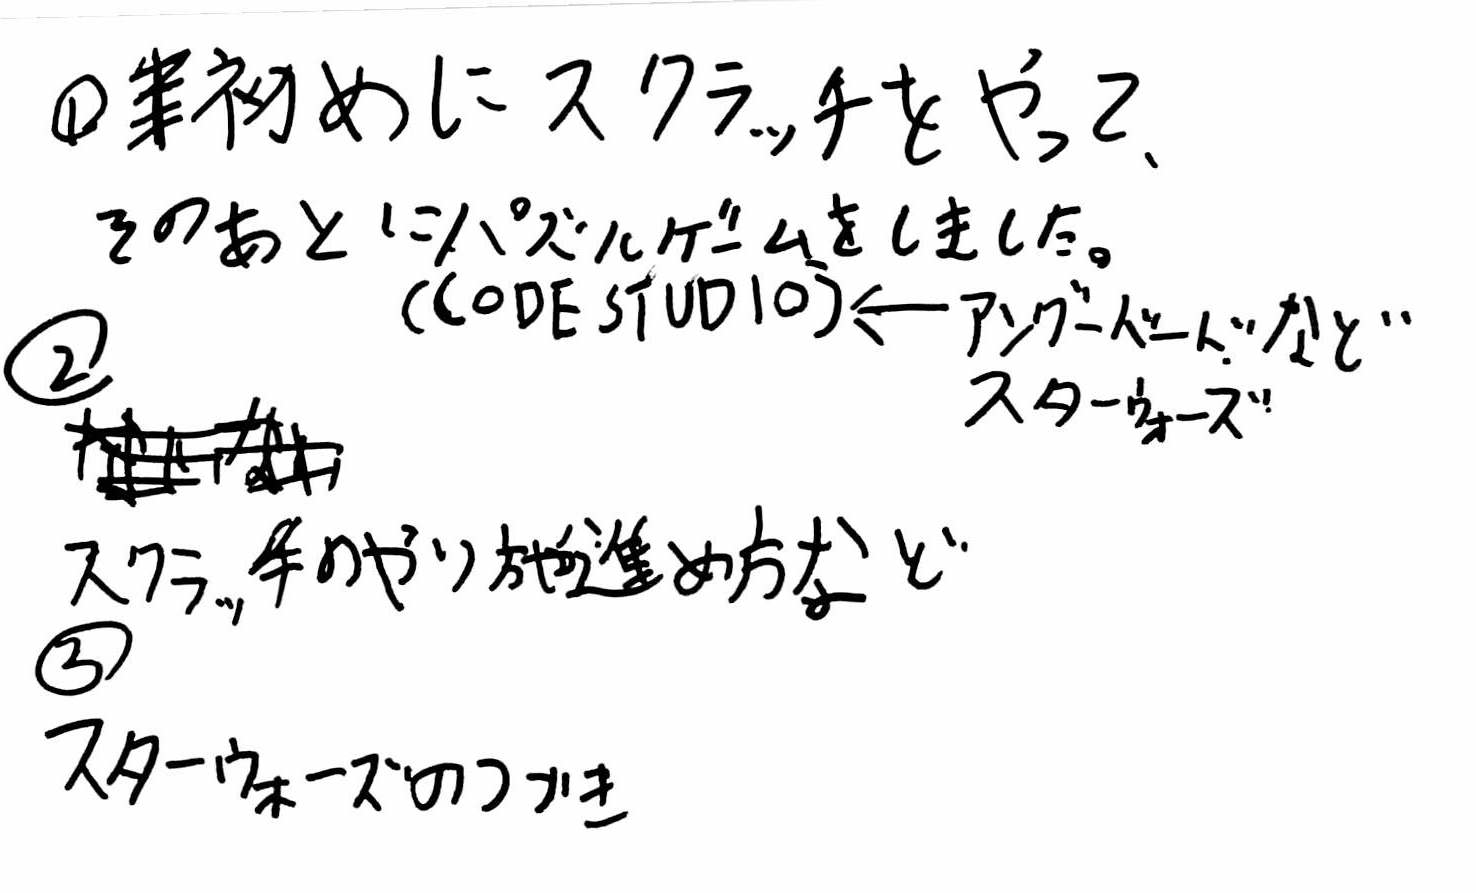 ①初めにスクラッチをやって、
そのあとにパズルゲームをしました。
(CODE STUDIO)←アングーバードなど…
スターウォーズ
②
スクラッチのやり方や進め方など
③
スターウォーズのつづき